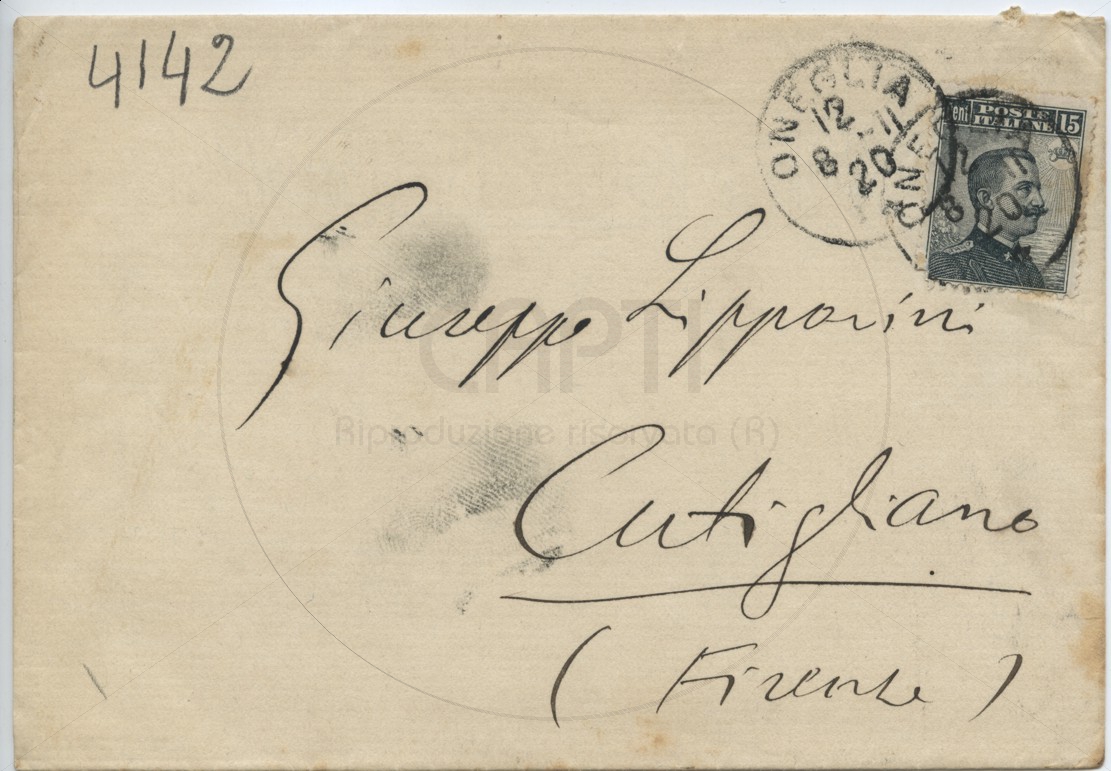 4142
ONEGLIA
12 - 11
8
20
ONE
12 11
8
20
Cent POSTE ITALIANE 15
Giuseppe Lipparini
Cutigliano
(Firenze)
CAPTI
Riproduzione riservata (R)